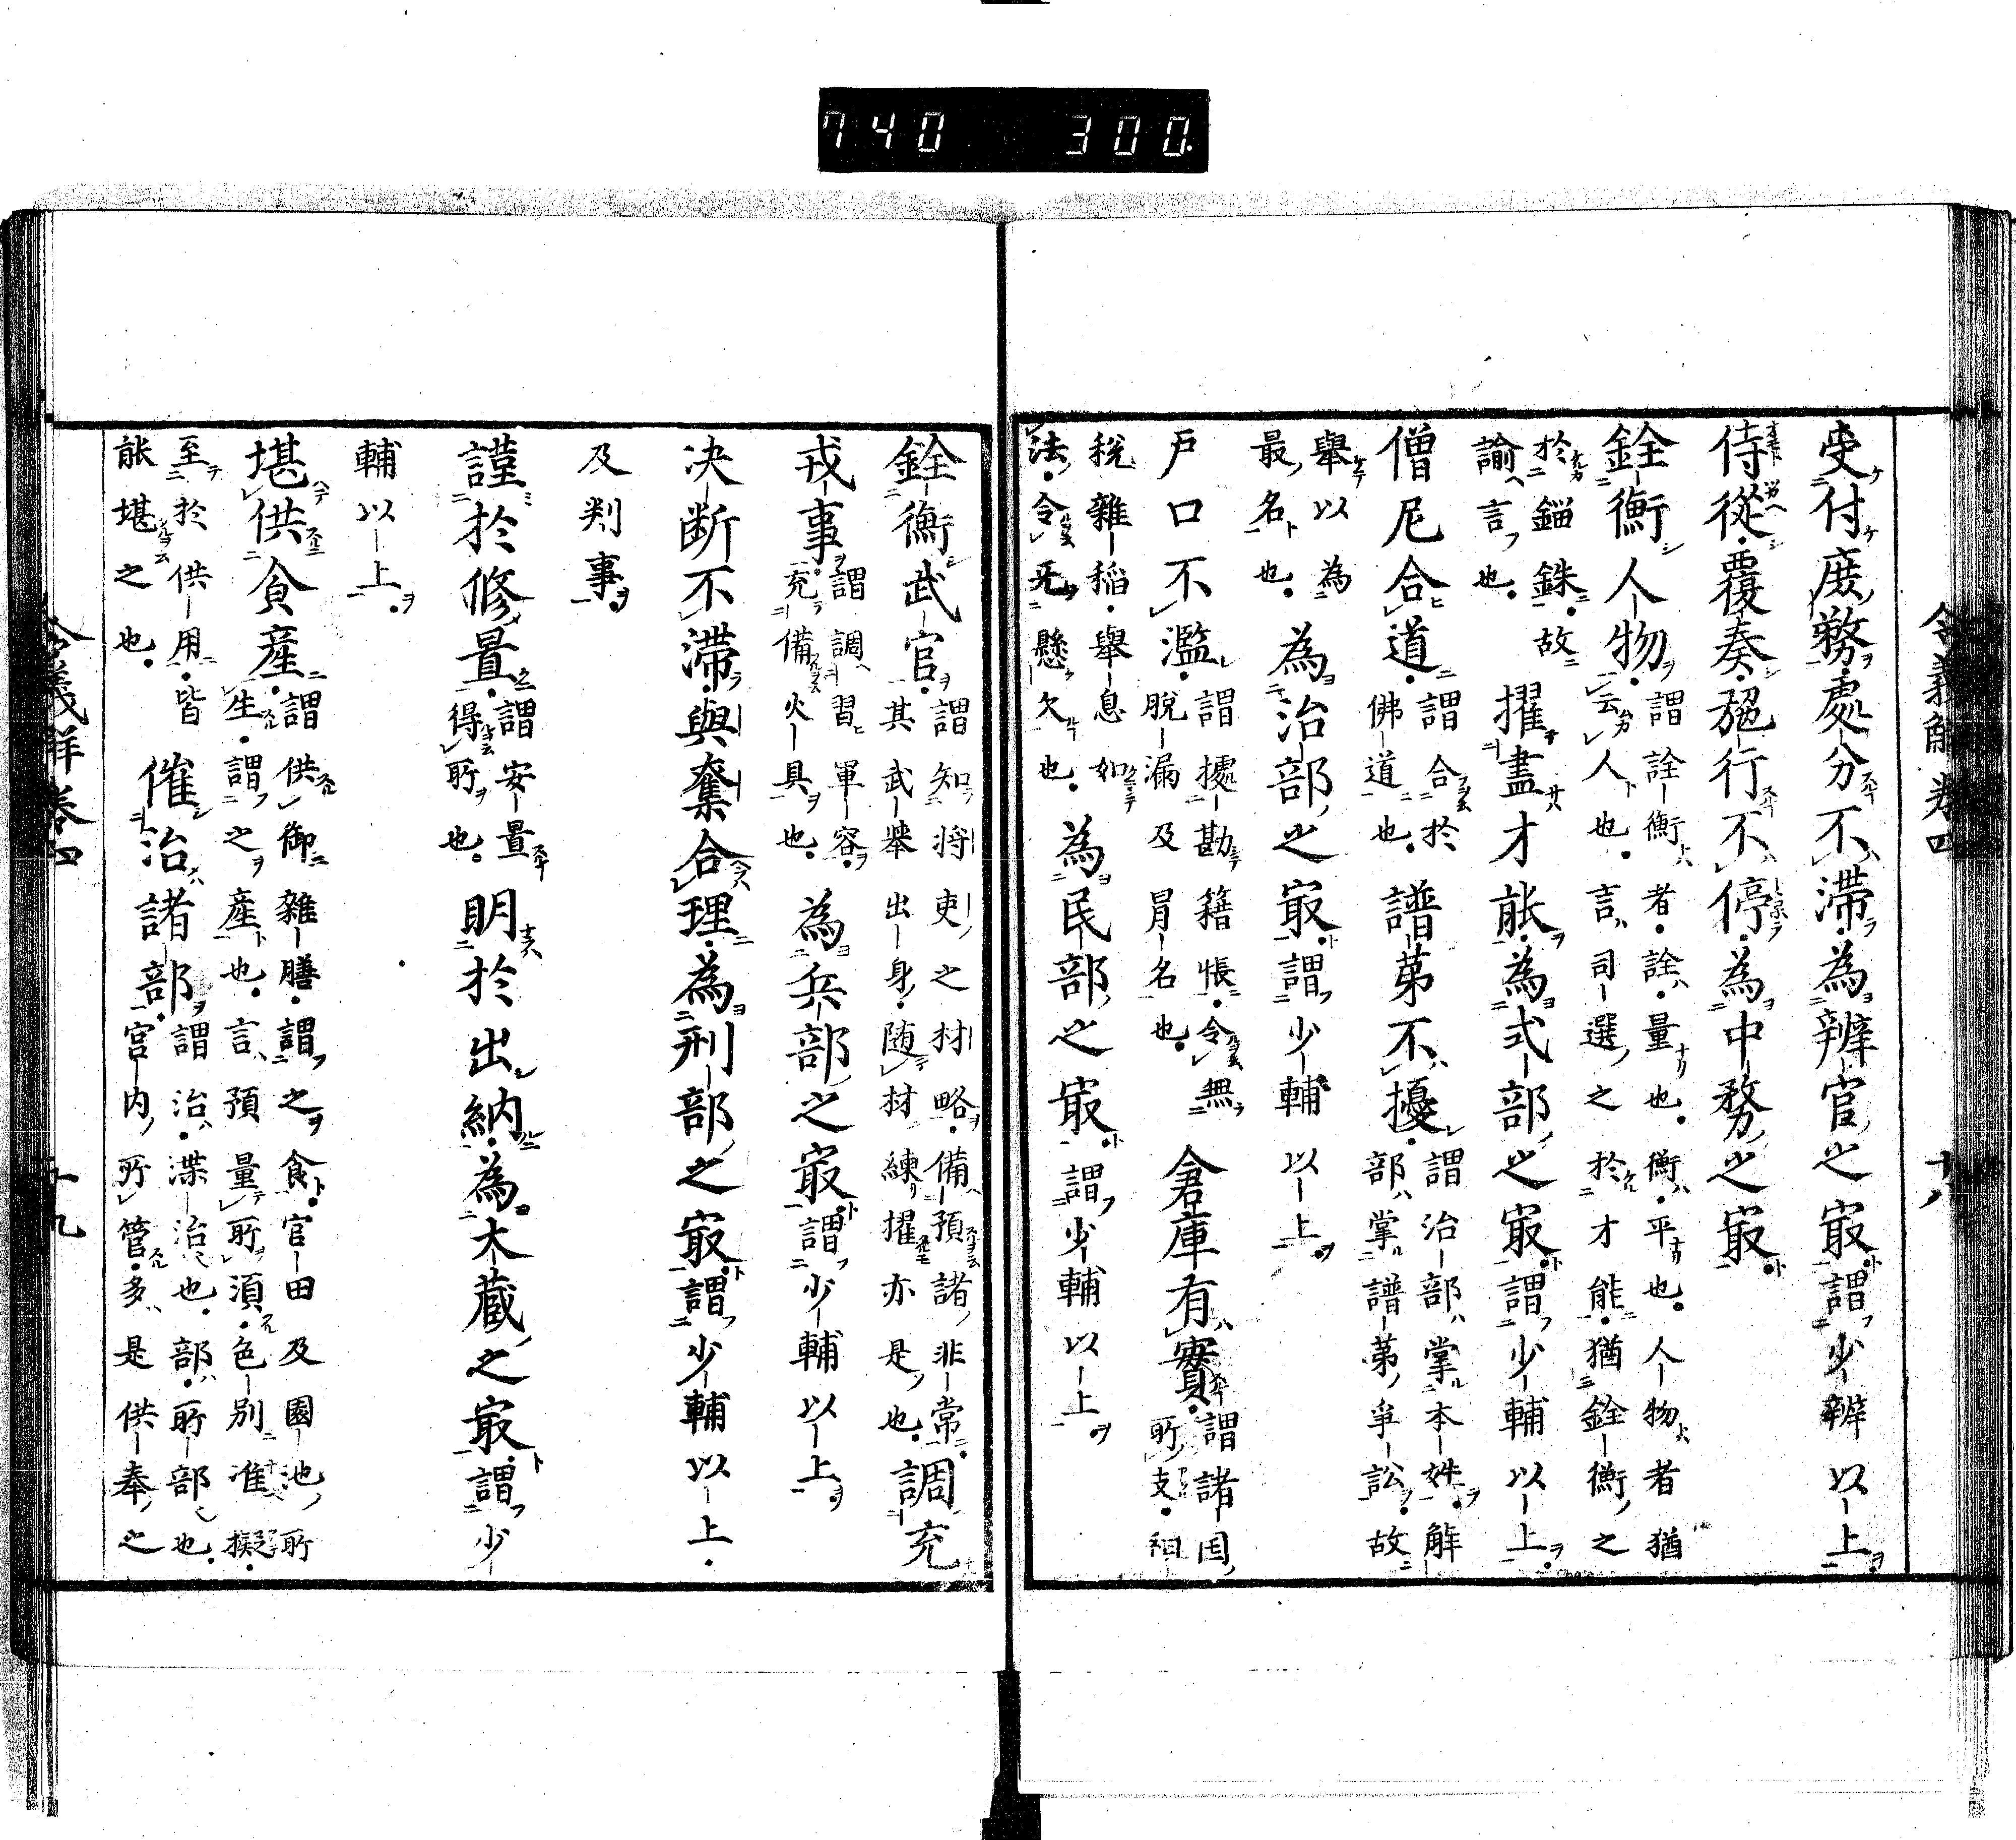 令義解卷四　十八
受付庶務處分不滯為辨官之冣謂少辨以上
侍從覆奏施行不停為中務之冣
銓衡人物謂詮衡者詮量也衡平也人物者猶
云人也言司選之於才能猶銓衡之
於錙銖故
諭言也擢盡才能為式部之冣謂少輔以上
僧尼合道謂合於
佛道也譜第不擾謂治部掌本姓解
部掌譜第爭訟故
舉以為
最名也為治部之冣謂少輔以上
戶口不濫謂據勘籍帳令無
脫漏及冒名也倉庫有實謂諸國
所支租
税雜稲舉息如
法令无懸欠也為民部之冣謂少輔以上
銓衡武官謂知将吏之材略備預諸非常
其武舉出身随材練擢亦是也調充
戎事謂調習軍容
充備火具也為兵部之冣謂少輔以上
决断不滯與奪合理為刑部之冣謂少輔以上
及判事
謹於修置謂安置
得所也明於出納為大蔵之冣謂少
輔以上
堪供食產謂供御雜膳謂之食官田及園池所
生謂之產也言預量所須色別准擬
至於供用皆
能堪之也催治諸部謂治渫治也部所部也
宮内所管多是供奉之
令義解卷四　十九